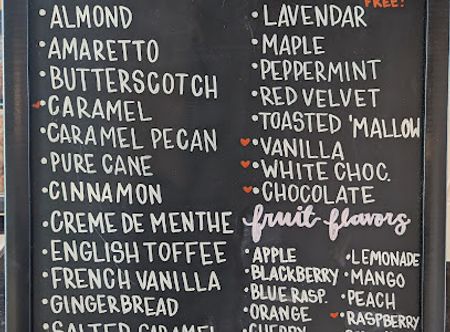 FREE!
• ALMOND
• AMARETTO
• BUTTERSCOTCH
• CARAMEL
• CARAMEL PECAN
• PURE CANE
• CINNAMON
• CREME DE MENTHE
• ENGLISH TOFFEE
• FRENCH VANILLA
• GINGERBREAD
• SALTED CARAMEL
• LAVENDAR
• MAPLE
• PEPPERMINT
• RED VELVET
• TOASTED 'MALLOW
• VANILLA
• WHITE CHOC.
• CHOCOLATE
fruit flavors
• APPLE
• BLACKBERRY
• BLUE RASP.
• ORANGE
• CHERRY
• LEMONADE
• MANGO
• PEACH
• RASPBERRY